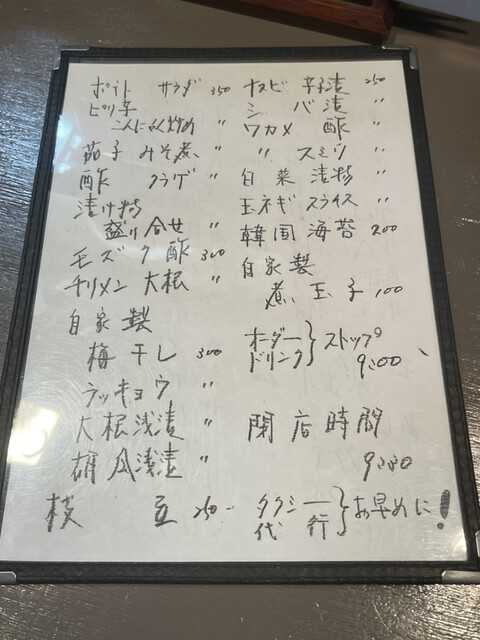 ポテト サラダ 350
ピリ辛
こんにゃく炒め 〃
茄子 みそ煮 〃
酢 クラゲ 〃
漬け物
盛り合せ 〃
モズク酢 300
チリメン大根 〃
自家製
梅干し 300
ラッキョウ 〃
大根浅漬 〃
胡瓜浅漬 〃
枝豆 250
ナスビ 辛子漬 250
シバ漬 〃
ワカメ酢 〃
〃 スミソ 〃
白菜漬物 〃
玉ネギ スライス 〃
韓国海苔 200
自家製
煮玉子 100
オーダー
ドリンク } ストップ
9:00
閉店時間
9:30
タクシー
代行 } お早めに!